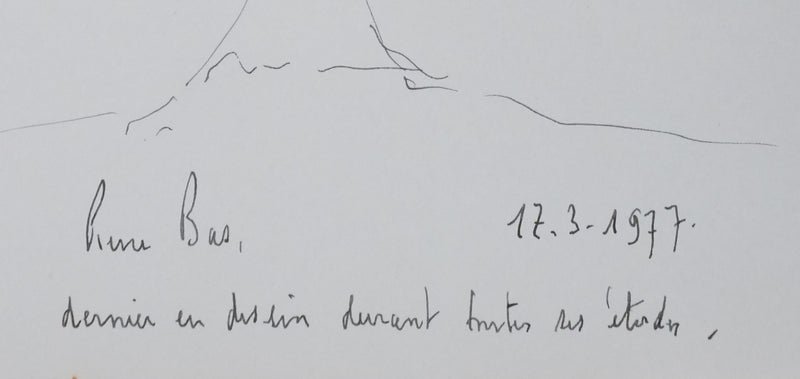 Pierre Bas, 17.3-1977.
dernier en dessin durant toutes ses études,